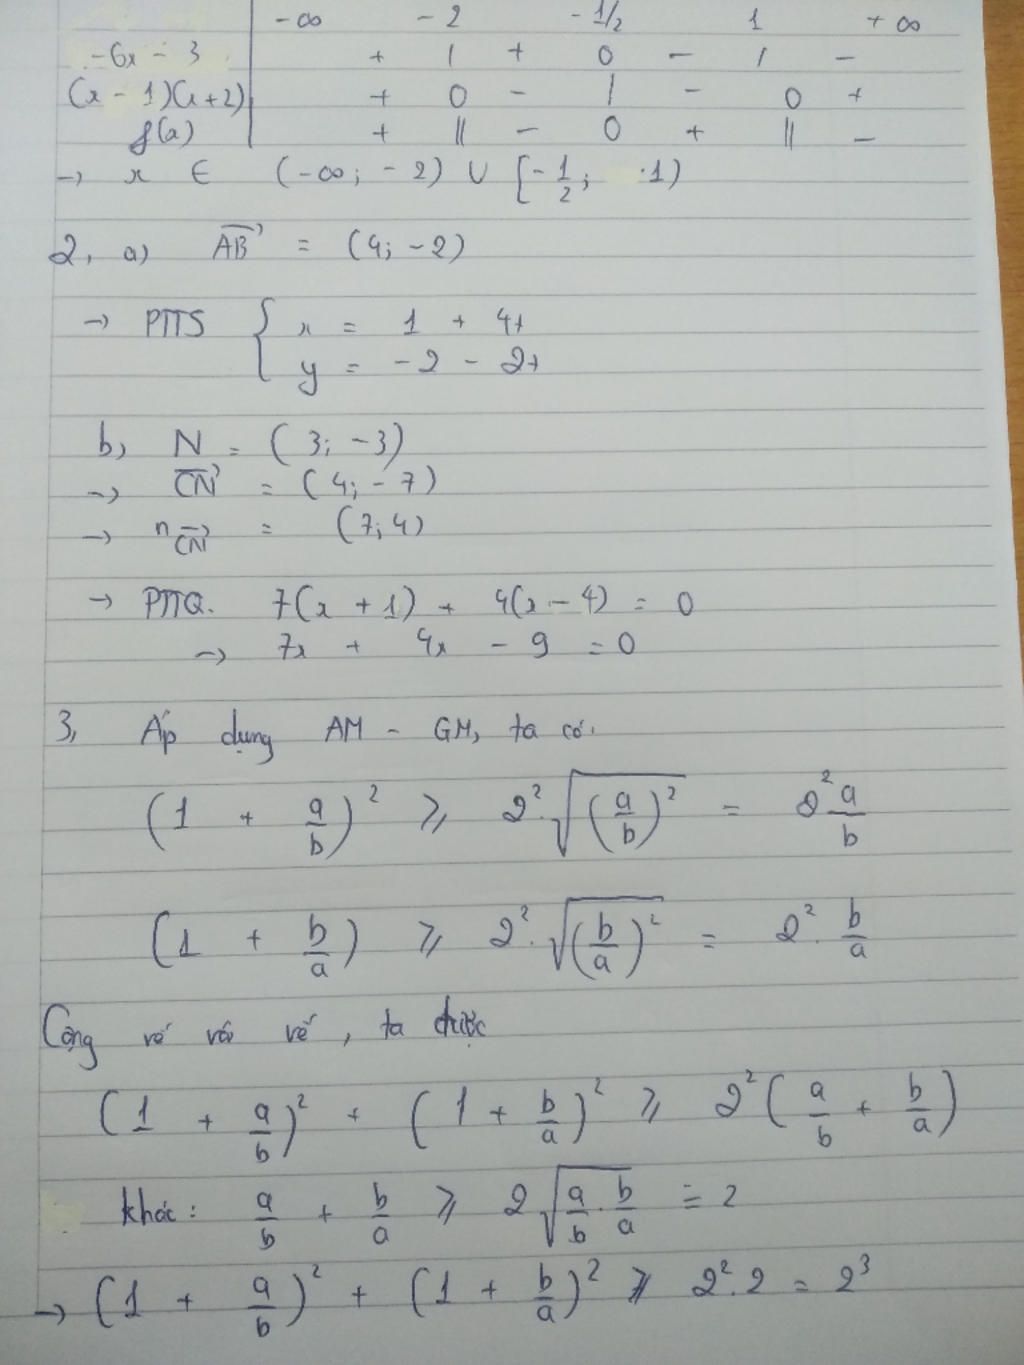 -∞ -2 -1/2 1 +∞
-6x - 3 + | + 0 - | -
(x - 1)(x+2) + 0 - | - 0 +
f(x) + || - 0 + || -
→ x ∈ (-∞; -2) ∪ [-1/2; 1)
2, a) AB⃗ = (4; -2)
→ PTTS { x = 1 + 4t
y = -2 - 2t
b, N = (3; -3)
→ CN⃗ = (4; -7)
→ n CN⃗ = (7; 4)
→ PTTQ. 7(x + 1) + 4(x - 4) = 0
→ 7x + 4x - 9 = 0
3, Áp dụng AM - GM, ta có.
(1 + a/b)² ⩾ 2².√(a/b)² = 2² a/b
(1 + b/a) ⩾ 2².√(b/a)² = 2². b/a
Cộng vế với vế, ta được
(1 + a/b)² + (1 + b/a)² ⩾ 2² (a/b + b/a)
khác: a/b + b/a ⩾ 2√(a/b . b/a) = 2
→ (1 + a/b)² + (1 + b/a)² ⩾ 2².2 = 2³